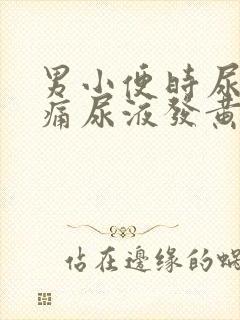 男小便時尿
痛尿液發黃
佔在邊緣的蝸